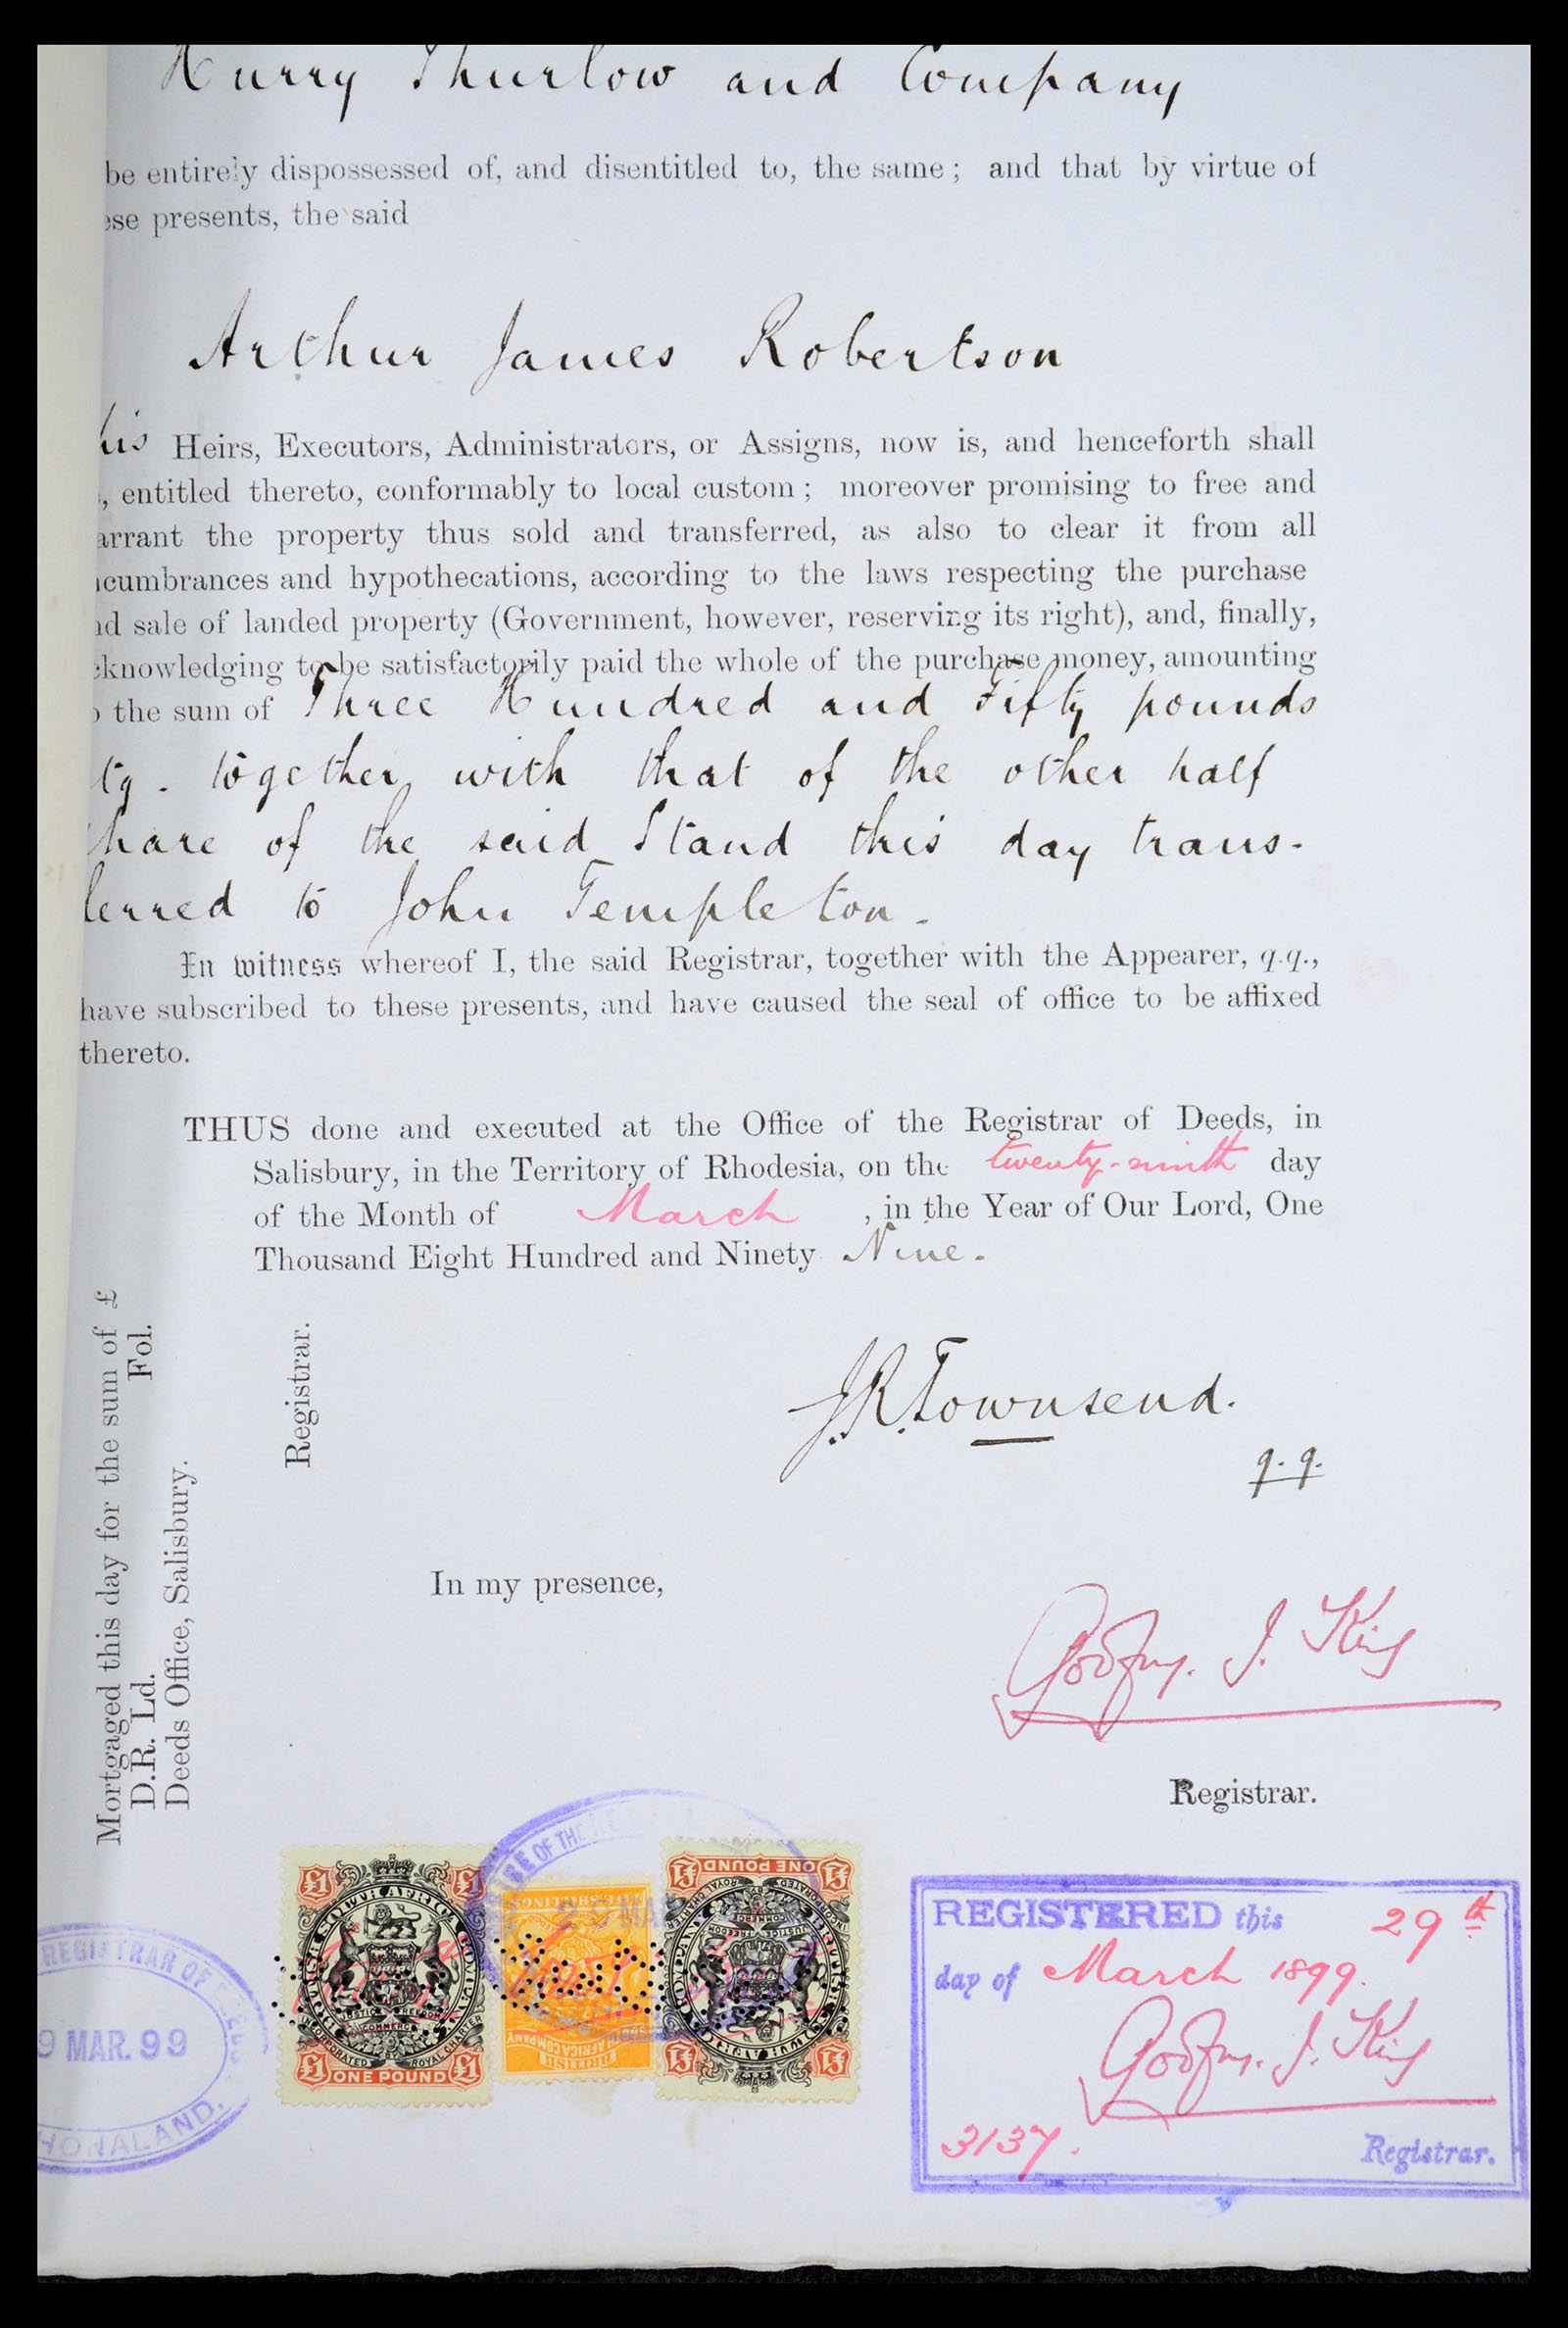 Hurry Thurlow and Company
be entirely dispossessed of, and disentitled to, the same ; and that by virtue of
ese presents, the said
Arthur James Robertson
his Heirs, Executors, Administrators, or Assigns, now is, and henceforth shall
, entitled thereto, conformably to local custom ; moreover promising to free and
arrant the property thus sold and transferred, as also to clear it from all
cumbrances and hypothecations, according to the laws respecting the purchase
nd sale of landed property (Government, however, reserving its right), and, finally,
cknowledging to be satisfactorily paid the whole of the purchase money, amounting
o the sum of Three Hundred and Fifty pounds
tg. together with that of the other half
share of the said Stand this day trans-
ferred to John Templeton.
In witness whereof I, the said Registrar, together with the Appearer, q.q.,
have subscribed to these presents, and have caused the seal of office to be affixed
thereto.
THUS done and executed at the Office of the Registrar of Deeds, in
Salisbury, in the Territory of Rhodesia, on the twenty-ninth day
of the Month of March , in the Year of Our Lord, One
Thousand Eight Hundred and Ninety Nine.
Mortgaged this day for the sum of £
D.R. Ld. Fol.
Deeds Office, Salisbury.
Registrar.
J.R. Townsend.
q.q.
In my presence,
Godfrey. J. King
Registrar.
REGISTRAR OF DEEDS
9 MAR. 99
HONALAND.
£1 £1
BRITISH SOUTH AFRICA COMPANY
JUSTICE FREEDOM
COMMERCE
INCORPORATED BY ROYAL CHARTER
£1 ONE POUND £1
OF THE
29 MA
SHILLINGS
BRITISH
SOUTH AFRICA COMPANY
£1 ONE POUND £1
INCORPORATED BY ROYAL CHARTER
COMMERCE
JUSTICE FREEDOM
£1 £1
REGISTERED this 29th
day of March 1899.
Godfrey. J. King
3137.
Registrar.